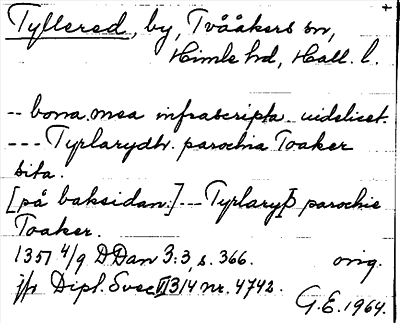 Tyllered, by, Tvååkers sn,
Himle hd, Hall. l.
-- bona mea infrascripta uidelicet.
--- Tyrlarydh. parochia Toaker
sita.
[på baksidan:] --- Tyrlaryþ parochie
Toaker.
1357 4/9 DDan 3:3, s. 366. orig.
jfr Dipl. Svec VII 3/4 nr. 4742.
G.E. 1964.